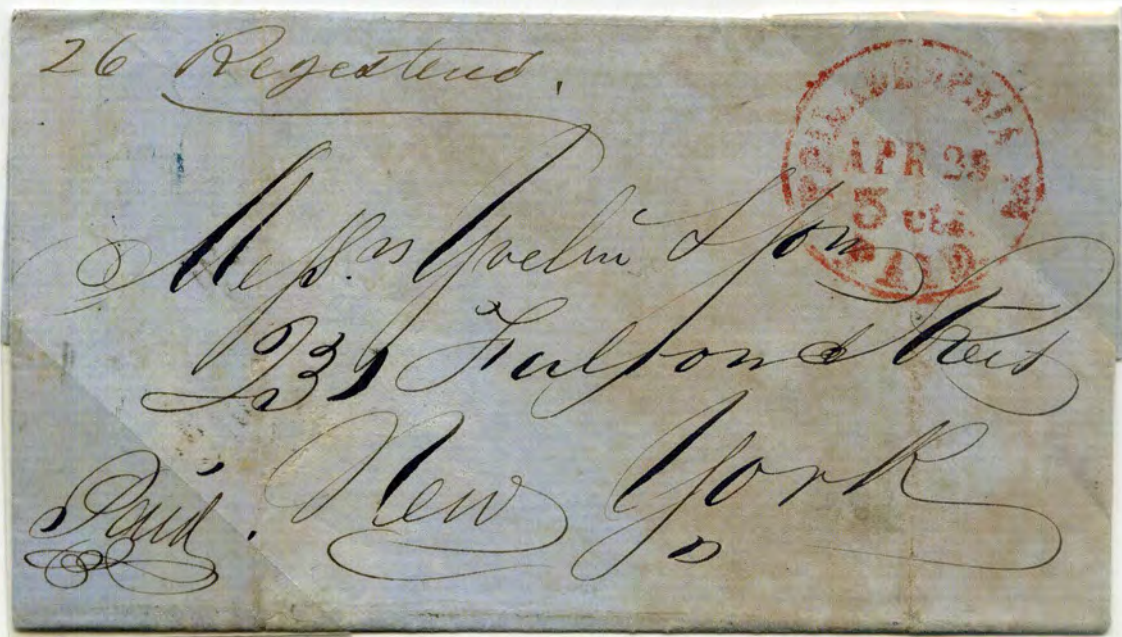 26 Registered.
PHILADELPHIA
APR 29
3 cts.
PAID
Messrs & Son
231 Fulton Street
New York
Paid.